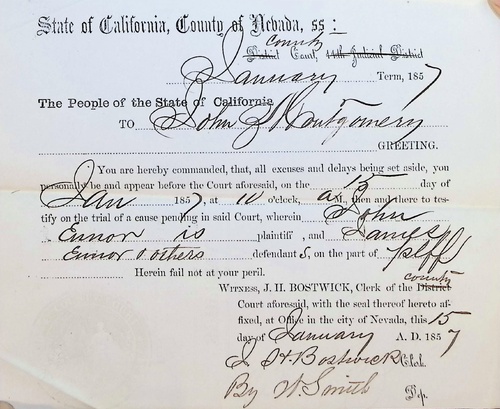 State of California, County of Nevada, ss:
County
District Court, 14th Judicial District
January Term, 1857
The People of the State of California
TO John Montgomery
GREETING.
You are hereby commanded, that, all excuses and delays being set aside, you
personally be and appear before the Court aforesaid, on the 15 day of
Jan 1857, at 10 o'clock, a M., then and there to tes-
tify on the trial of a cause pending in said Court, wherein John
Ennor is plaintiff, and James
Ennor & others defendants, on the part of plff
Herein fail not at your peril.
County
WITNESS, J. H. BOSTWICK, Clerk of the District
Court aforesaid, with the seal thereof hereto af-
fixed, at Office in the city of Nevada, this 15
day of January A. D. 1857
J. H. Bostwick Clerk.
By W. Smith Dep.